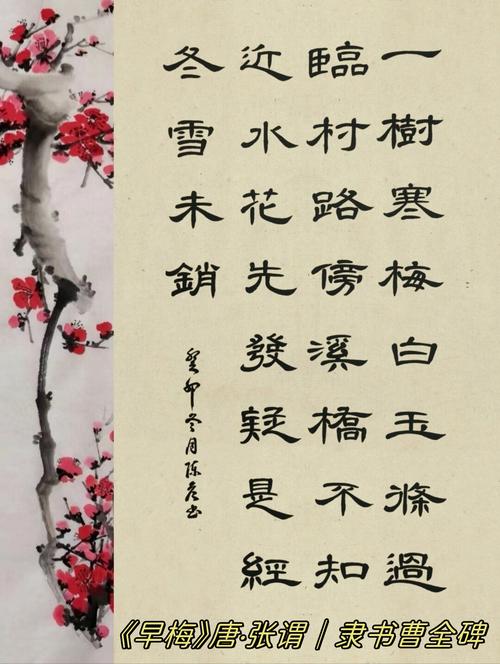 一樹寒梅白玉條過
臨村路傍溪橋不知
近水花先發疑是經
冬雪未銷
癸卯冬月陈彦书
《早梅》唐·张谓｜隶书曹全碑